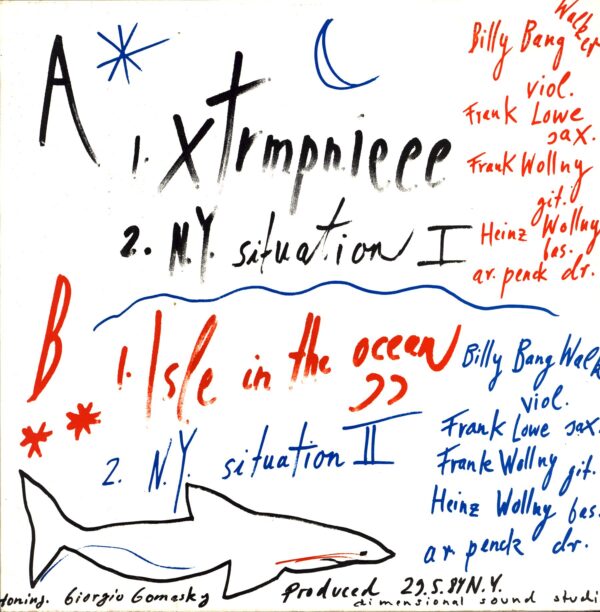 A
1. Xtrmpnieee
2. N.Y. situation I
Billy Bang Walker
viol.
Frank Lowe
sax.
Frank Wollny
git.
Heinz Wollny
bas.
ar. penck dr.
B
1. Isle in the ocean
2. N.Y. situation II
Billy Bang Walk
viol.
Frank Lowe sax.
Frank Wollny git.
Heinz Wollny bas.
ar. penck dr.
toning. Giorgio Gomasky
Produced 29.5.84 N.Y.
dimensional sound studi